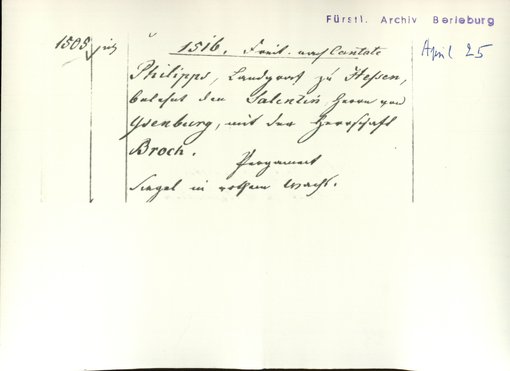 Fürstl. Archiv Berleburg
1505
1516. Freit. nach Cantate
April 25
Philipps, Landgraf zu Hessen,
belehnt den Salentin Herrn von
Ysenburg, mit der Herrschaft
Broch.
Pergament
Siegel in rothem Wachs.